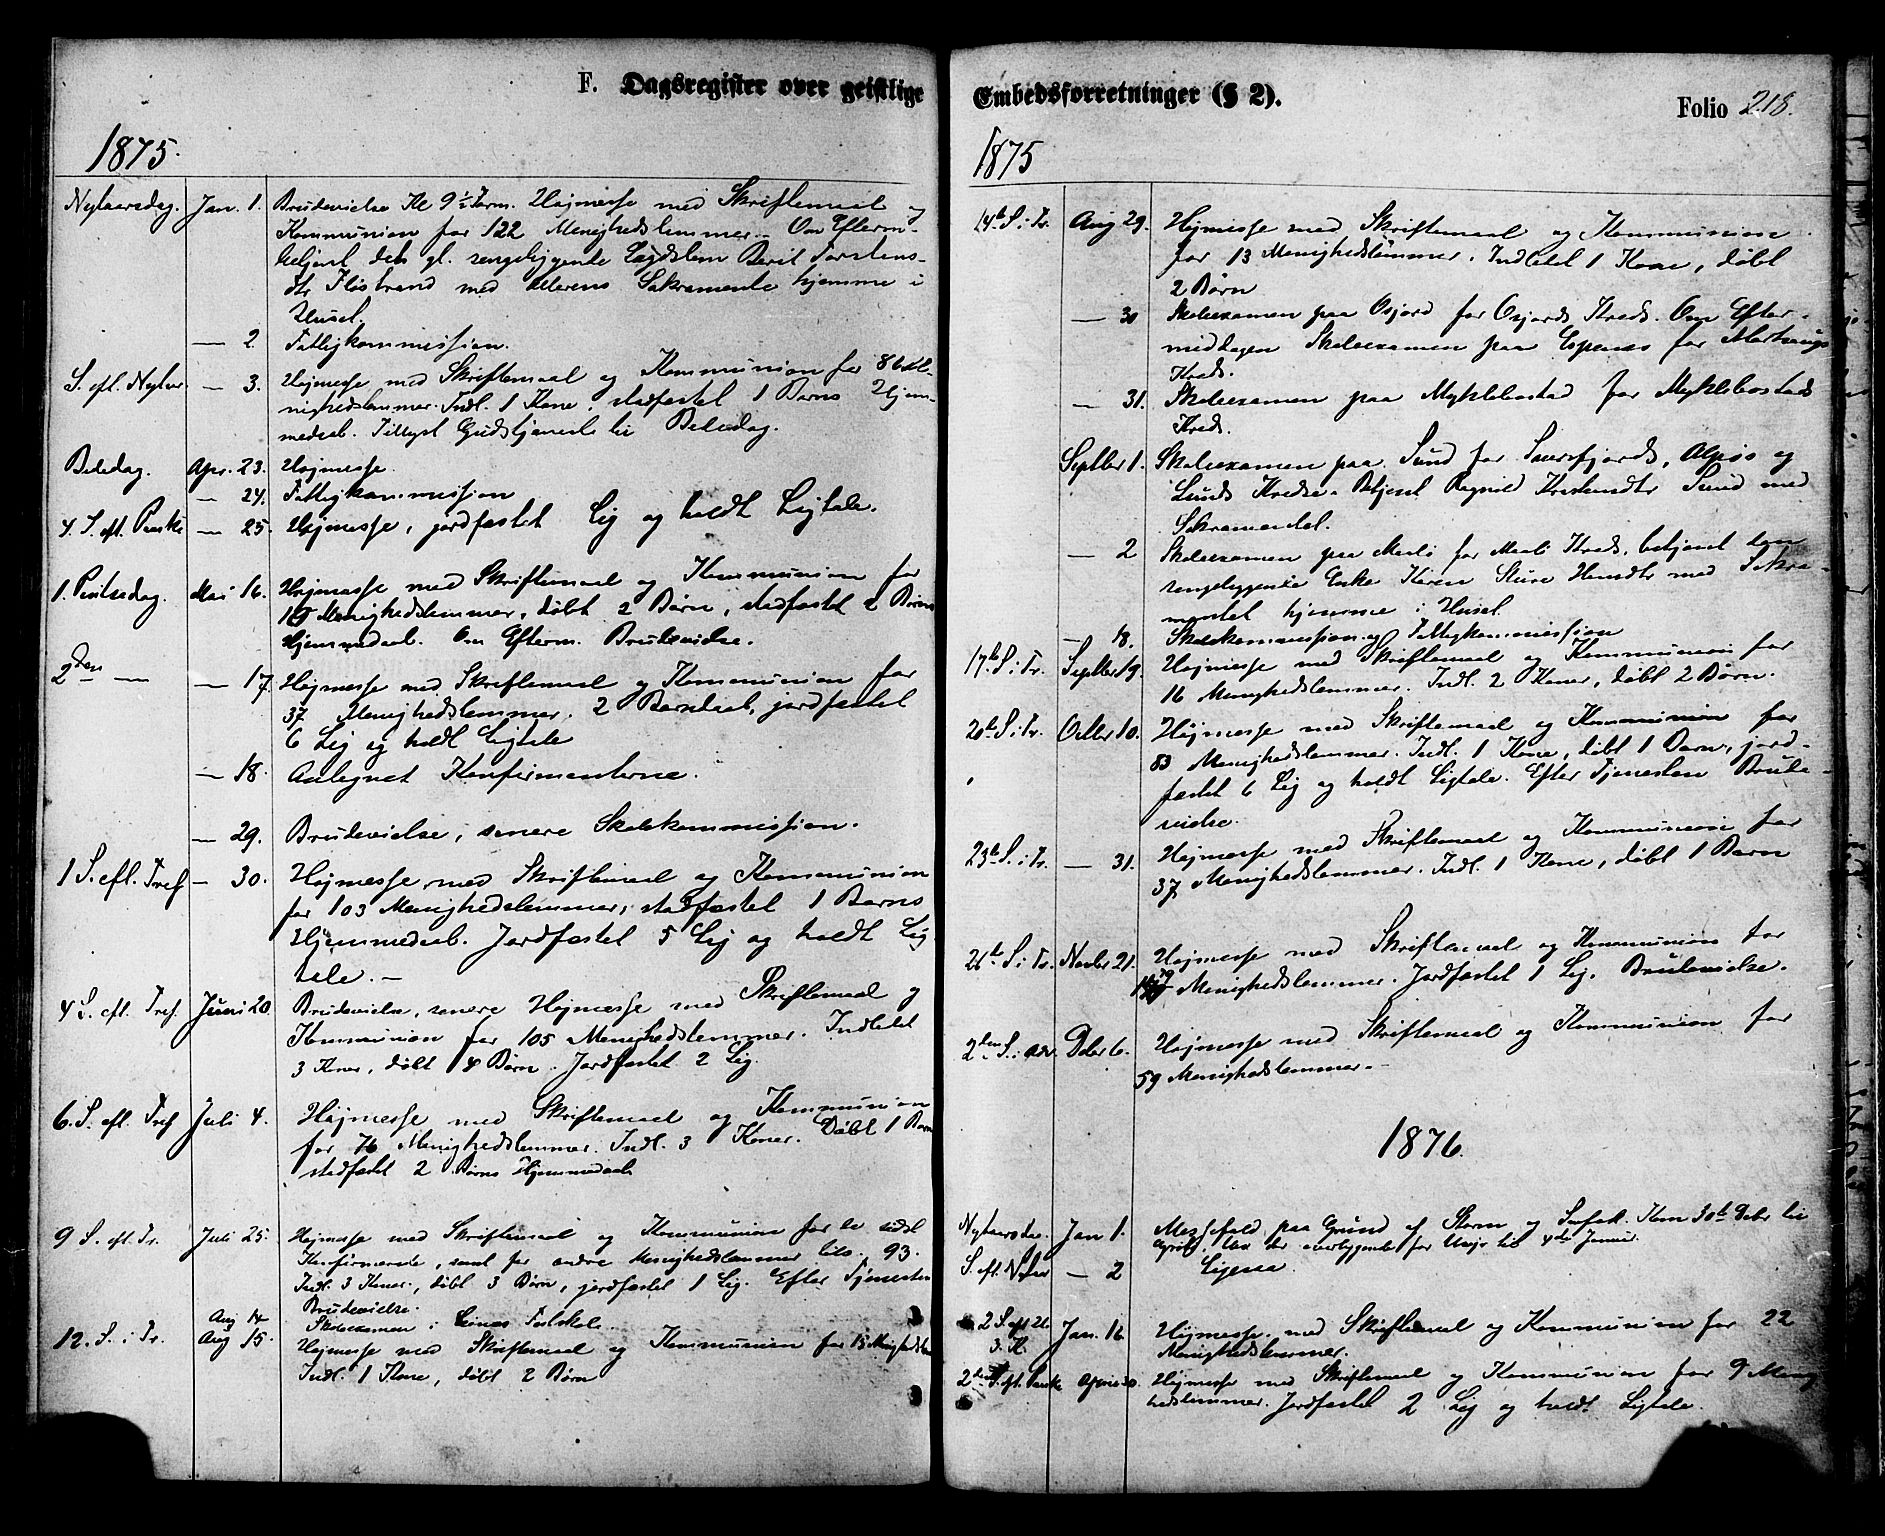 F. Dagsregister over geistlige
1875.
Nytaarsdag. Jan. 1. Brudevielse Kl 9½ Form. Højmesse med Skriftemaal og
Kommunion for 122 Menighedslemmer. Om Efterm.
betjent den gl. sengeliggende Lægdslem Berit Torstens-
dtr Flostrand med Alterens Sakramente hjemme i
Huset.
— 2. Fattigkommission.
S. eft. Nytaar — 3. Højmesse med Skriftemaal og Kommunion for 86 Me-
nighedslemmer. Indl. 1 Kone, stadfæstet 1 Barns Hjem-
medaab. Tillyst Gudstjeneste til Bededag.
Bededag. Apr. 23. Højmesse.
— 24. Fattigkommission
4. S. eft. Paaske — 25. Højmesse, jordfæstet Lig og holdt Ligtale.
1. Pintsedag. Mai 16. Højmesse med Skriftemaal og Kommunion for
Menighedslemmer, døbt 2 Børn, stadfæstet 2 Børns
Hjemmedaab. Om Efterm. Brudevielse.
2den — — 17. Højmesse med Skriftemaal og Kommunion for
37 Menighedslemmer. 2 Barndaab, jordfæstet
6 Lig og holdt Ligtale
— 18. Antegnet Konfirmanterne.
— 29. Brudevielse, senere Skolekommission.
1 S. eft. Tref — 30. Højmesse med Skriftemaal og Kommunion
for 103 Menighedslemmer, stadfæstet 1 Barns
Hjemmedaab. Jordfæstet 5 Lig og holdt Lig-
tale. —
4 S. eft. Tref. Juni 20. Brudevielse, senere Højmesse med Skriftemaal og
Kommunion for 105 Menighedslemmer. Indledet
3 Koner, døbt 4 Børn. Jordfæstet 2 Lig.
6. S. eft. Tref Juli 4. Højmesse med Skriftemaal og Kommunion
for 76 Menighedslemmer. Indl. 3 Koner. Døbt 1 Barn
stadfæstet 2 Børns Hjemmedaab
9 S. eft. Tr. Juli 25. Højmesse med Skriftemaal og Kommunion for de sidst
Konfirmerede, samt for andre Menighedslemmer tils. 93.
Indl. 3 Koner, døbt 3 Børn, jordfæstet 1 Lig. Efter Tjenesten
Brudevielse.
Aug 14 Skoleexamen i Leines Fastskole.
12. S. i Tr. Aug 15. Højmesse med Skriftemaal og Kommunion for 15 Menighedslem
Indl. 1 Kone, døbt 2 Børn
Embedsforretninger (§ 2).
Folio 218.
1875
14de S. i Tr. Aug 29. Højmesse med Skriftemaal og Kommunion
for 13 Menighedslemmer. Indledet 1 Kone, døbt
2 Børn
— 30 Skoleexamen paa Osjord for Osjords Kreds. Om Efter-
middagen Skoleexamen paa Espenes for
Kreds.
— 31. Skoleexamen paa Myklebostad for Myklebostads
Kreds.
Septber 1. Skoleexamen paa Sund for Saursfjords, Alpøs og
Sunds Kredse. Betjent Ragnild Kristensdtr Sund med
Sakramentet.
— 2 Skoleexamen paa for Kreds, betjent den
sengeliggende Enke Karen Sture Hansdtr med Sakra-
mentet hjemme i Huset.
— 18. Skolekommission og Fattigkommission
17de S. i Tr. Septber 19. Højmesse med Skriftemaal og Kommunion for
16 Menighedslemmer. Indl. 2 Koner, døbt 2 Børn.
20de S. i Tr. Octber 10. Højmesse med Skriftemaal og Kommunion for
83 Menighedslemmer. Indl. 1 Kone, døbt 1 Barn, jord-
fæstet 6 Lig og holdt Ligtale. Efter Tjenesten Brude-
vielse.
23de S. i Tr. — 31. Højmesse med Skriftemaal og Kommunion for
37 Menighedslemmer. Indl. 1 Kone, døbt 1 Barn
26de S. i Tr. Novber 21. Højmesse med Skriftemaal og Kommunion for
Menighedslemmer. Jordfæstet 1 Lig. Brudevielse.
2den S. i Adv. Decbr 6. Højmesse med Skriftemaal og Kommunion for
59 Menighedslemmer. —
1876.
Nytaarsdag. Jan 1. Messefald paa Grund af Storm og Snefok. Kom 30te Decbr til
Var der overliggende for Uveir til 4de Januar.
S. eft. Nytaar — 2 Ligesaa.
2 S. eft. H. 3. K. Jan. 16 Højmesse med Skriftemaal og Kommunion for 22
Menighedslemmer.
2den S. eft. Paaske April 30. Højmesse med Skriftemaal og Kommunion for 9 Menig
hedslemmer. Jordfæstet 2 Lig og holdt Ligtale.